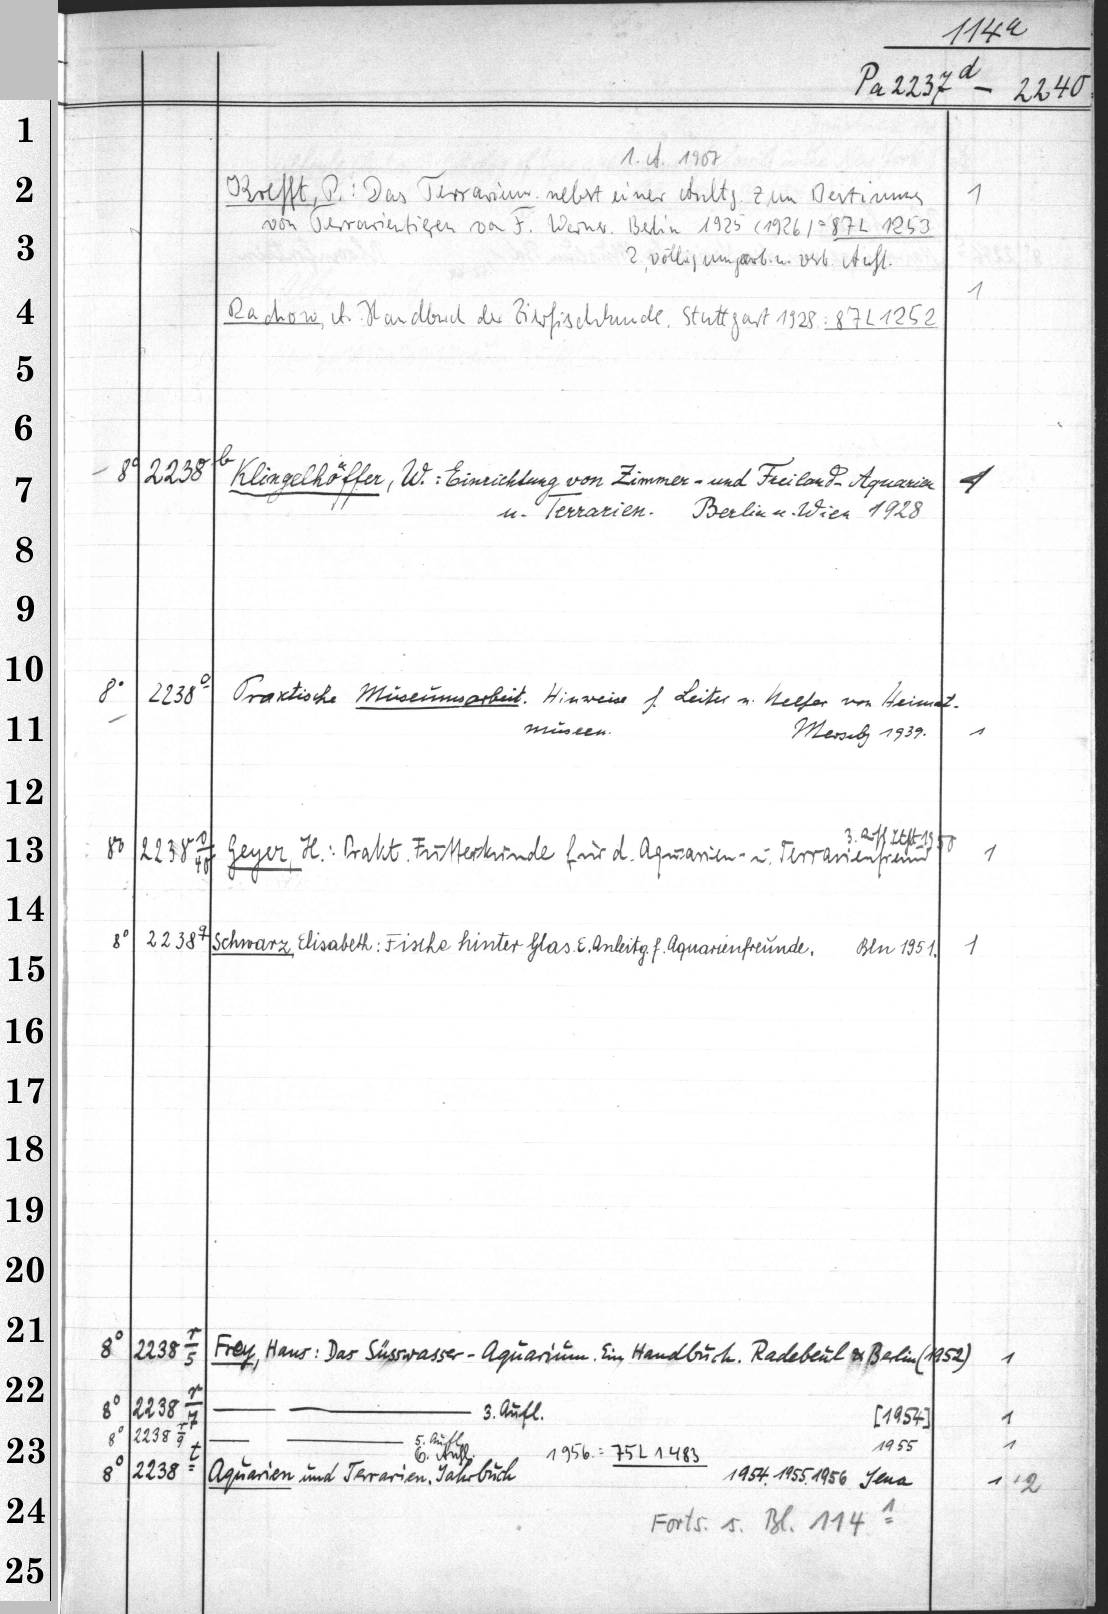 114a
Pa 2237d - 2240
1
1. A. 1907
2 Krefft, P.: Das Terrarium nebst einer Anltg. zum Bestimmen 1
von Terrarientieren von F. Werner. Berlin 1925 (1926) = 87 L 1253
3 2., völlig umgearb. u. verb. Aufl.
1
4 Rachow, A. Handbuch der Zierfischkunde. Stuttgart 1928 : 87 L 1252
5
6
7 - 8° 2238b Klingelhöffer, W.: Einrichtung von Zimmer- und Freiland-Aquarien 1
u. Terrarien. Berlin u. Wien 1928
8
9
10 8° 2238o Praktische Museumsarbeit. Hinweise f. Leiter u. Helfer von Heimat-
11 museen. Mersebg 1939. 1
12
3. Aufl. Stgt. 1950
13 8° 2238 p/40 Geyer, H.: Prakt. Futterkunde für d. Aquarien- u. Terrarienfreund 1
14
15 8° 2238q Schwarz, Elisabeth: Fische hinter Glas. E. Anleitg. f. Aquarienfreunde. Bln 1951. 1
16
17
18
19
20
21 8° 2238 r/5 Frey, Hans: Das Süsswasser-Aquarium. Ein Handbuch. Radebeul & Berlin (1952) 1
22 8° 2238 r/7 — — 3. Aufl. [1954] 1
8° 2238 r/9 — — 5. Aufl. 1955 1
23 6. Aufl. 1956 = 75 L 1483
8° 2238 t Aquarien und Terrarien. Jahrbuch 1954. 1955. 1956 Jena 1 2
24 Forts. s. Bl. 114 1
25